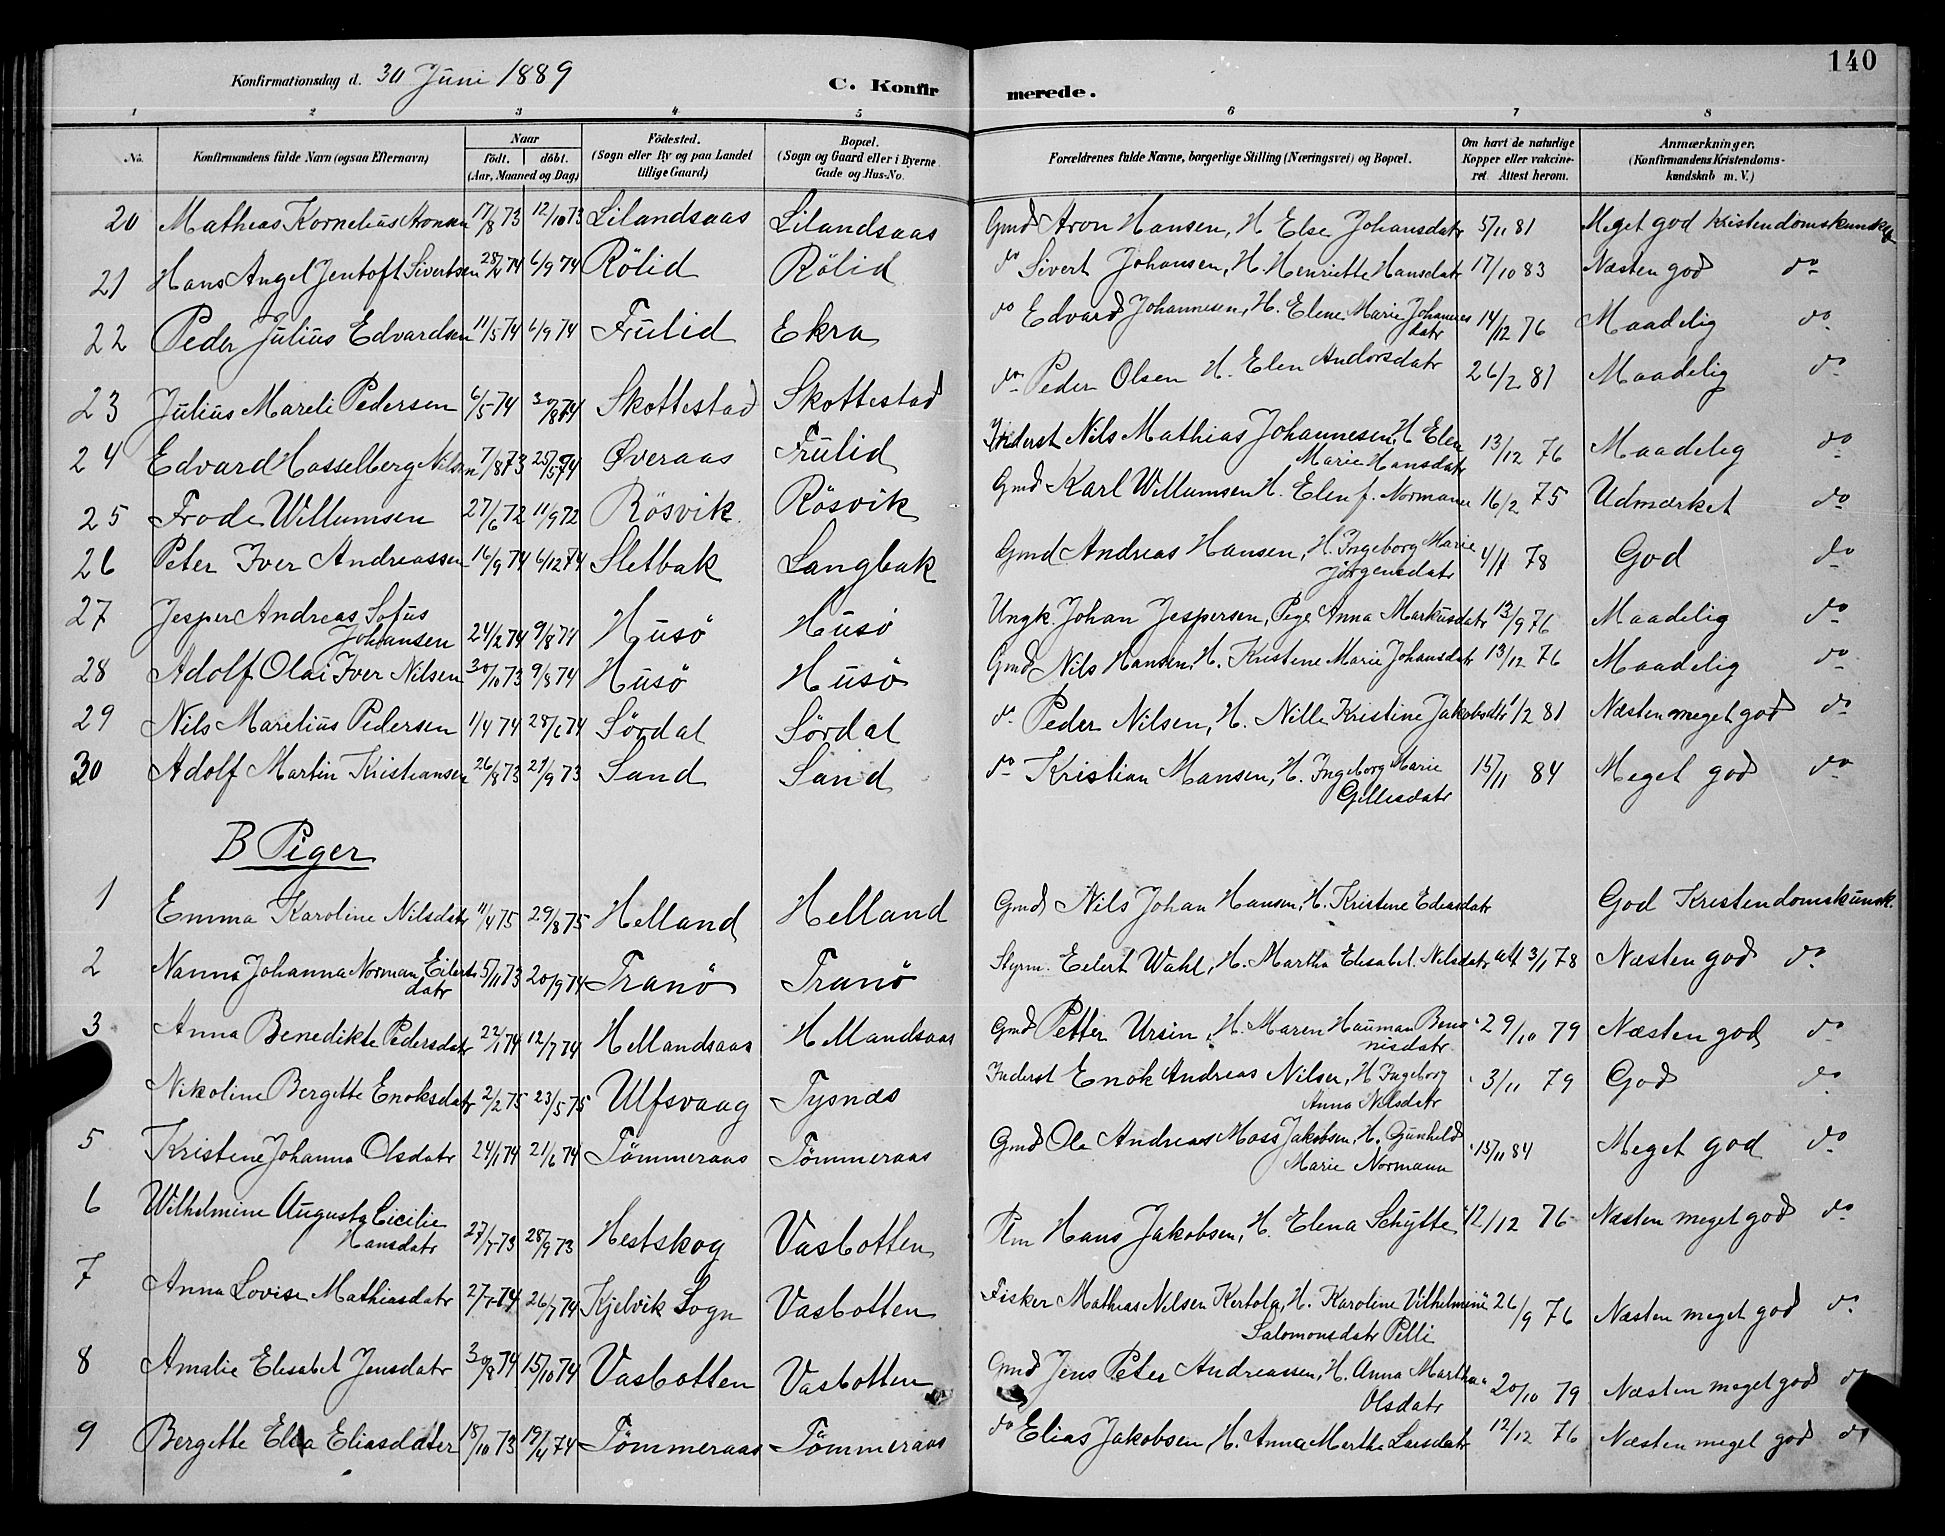 140
Konfirmationsdag d. 30 Juni 1889 C. Konfirmerede.
1 2 3 4 5 6 7 8
No. Konfirmandens fulde Navn (ogsaa Efternavn) Naar födt. döbt. (Aar, Maaned og Dag) Födested. (Sogn eller By og paa Landet tillige Gaard) Bopæl. (Sogn og Gaard eller i Byerne Gade og Hus-No. Forældrenes fulde Navne, borgerlige Stilling (Næringsvei) og Bopæl. Om havt de naturlige Kopper eller vakcineret. Attest herom. Anmærkninger. (Konfirmandens Kristendomskundskab m. V.)
20 Mathias Kornelius Aronsen 17/8 73 12/10 73 Lilandsaas Lilandsaas Gmd Aron Hansen, H Else Johansdatr 5/11 81 Meget god Kristendomskundsk
21 Hans Angel Jentoft Sivertsen 28/4 74 6/9 74 Rölid Rölid do Sivert Johansen, H. Henriette Hansdatr 17/10 83 Næsten god do
22 Peder Julius Edvardsen 11/5 74 6/9 74 Frulid Ekra do Edvard Johannesen, H. Elene Marie Johannes
datr 14/12 76 Maadelig do
23 Julius Mareli Pedersen 6/5 74 30/8 74 Skottestad Skottestad do Peder Olsen H. Elen Andorsdatr 26/2 81 Maadelig do
24 Edvard Hasselberg Nilsen 7/8 73 25/5 74 Øveraas Frulid Inderst Nils Mathias Johannesen, H Elen
Marie Hansdatr 13/12 76 Maadelig do
25 Frode Willumsen 27/6 72 11/9 72 Rösvik Rösvik Gmd Karl Willumsen H. Elen f. Normann 16/2 75 Udmærket do
26 Peter Iver Andreassen 16/9 74 6/12 74 Sletbak Langbak Gmd Andreas Hansen, H. Ingeborg Marie
Jörgensdatr 4/1 78 God do
27 Jesper Andreas Sofus
Johansen 24/2 74 9/8 74 Husö Husö Ungk. Johan Jespersen, Pige Anna Markusdatr 13/9 76 Maadelig do
28 Adolf Olai Iver Nilsen 30/10 73 9/8 74 Husö Husö Gmd Nils Hansen, H. Kristene Marie Johansdatr 13/12 76 Maadelig do
29 Nils Marelius Pedersen 1/4 74 28/6 74 Sördal Sördal do Peder Nilsen, H. Nille Kristine Jakobsdtr 1/2 81 Næsten meget god do
30 Adolf Martin Kristiansen 26/8 73 21/9 73 Sand Sand do Kristian Hansen, H. Ingeborg Marie
Gillesdatr 15/11 84 Meget god do
B Piger
1 Emma Karoline Nilsdatr 11/4 75 29/8 75 Helland Helland Gmd Nils Johan Hansen, H. Kristene Ediasdatr God Kristendomskunsk.
2 Nanna Johanna Norman Eilerts
datr 5/11 73 20/9 74 Tranö Tranö Styrm. Eilert Wahl, H. Martha Elisabet Nilsdatr att 3/1 78 Næsten god do
3 Anna Benedikte Pedersdatr 22/1 74 12/7 74 Hellandsaas Hellandsaas Gmd Petter Ursin, H. Maren Hauman Beno
nisdatr 29/10 79 Næsten god do
Nikoline Bergitte Enoksdatr 2/2 75 23/5 75 Ulfsvaag Tysnæs Inderst Enok Andreas Nilsen, H Ingeborg
Anna Nilsdatr 3/11 79 God do
5 Kristene Johanna Olsdatr 24/1 74 21/6 74 Tömmeraas Tömmeraas Gmd Ole Andreas Moss Jakobsen, H. Gunhild
Marie Normann 15/11 84 Meget god do
6 Wilhelmine Augusta Cicilie
Hansdatr 27/7 73 28/9 73 Hestskog Vasbotten Rm Hans Jakobsen, H. Elena Schytte 12/12 76 Næsten meget god do
7 Anna Lovise Mathiasdatr 27/5 74 26/7 74 Kjelvik Sogn Vasbotten Fisker Mathias Nilsen Kertola, H. Karoline Vilhelmine
Salomonsdatr Pelli 26/9 76 Næsten meget god do
8 Amalie Elisabet Jensdatr 30/8 74 15/10 74 Vasbotten Vasbotten Gmd Jens Peter Andreassen, H. Anna Martha
Olsdatr 20/10 79 Næsten meget god do
9 Bergette Elea Eliasdater 15/10 73 19/4 74 Tömmeraas Tömmeraas do Elias Jakobsen, H. Anna Mertha Larsdatr 12/12 76 Næsten meget god do